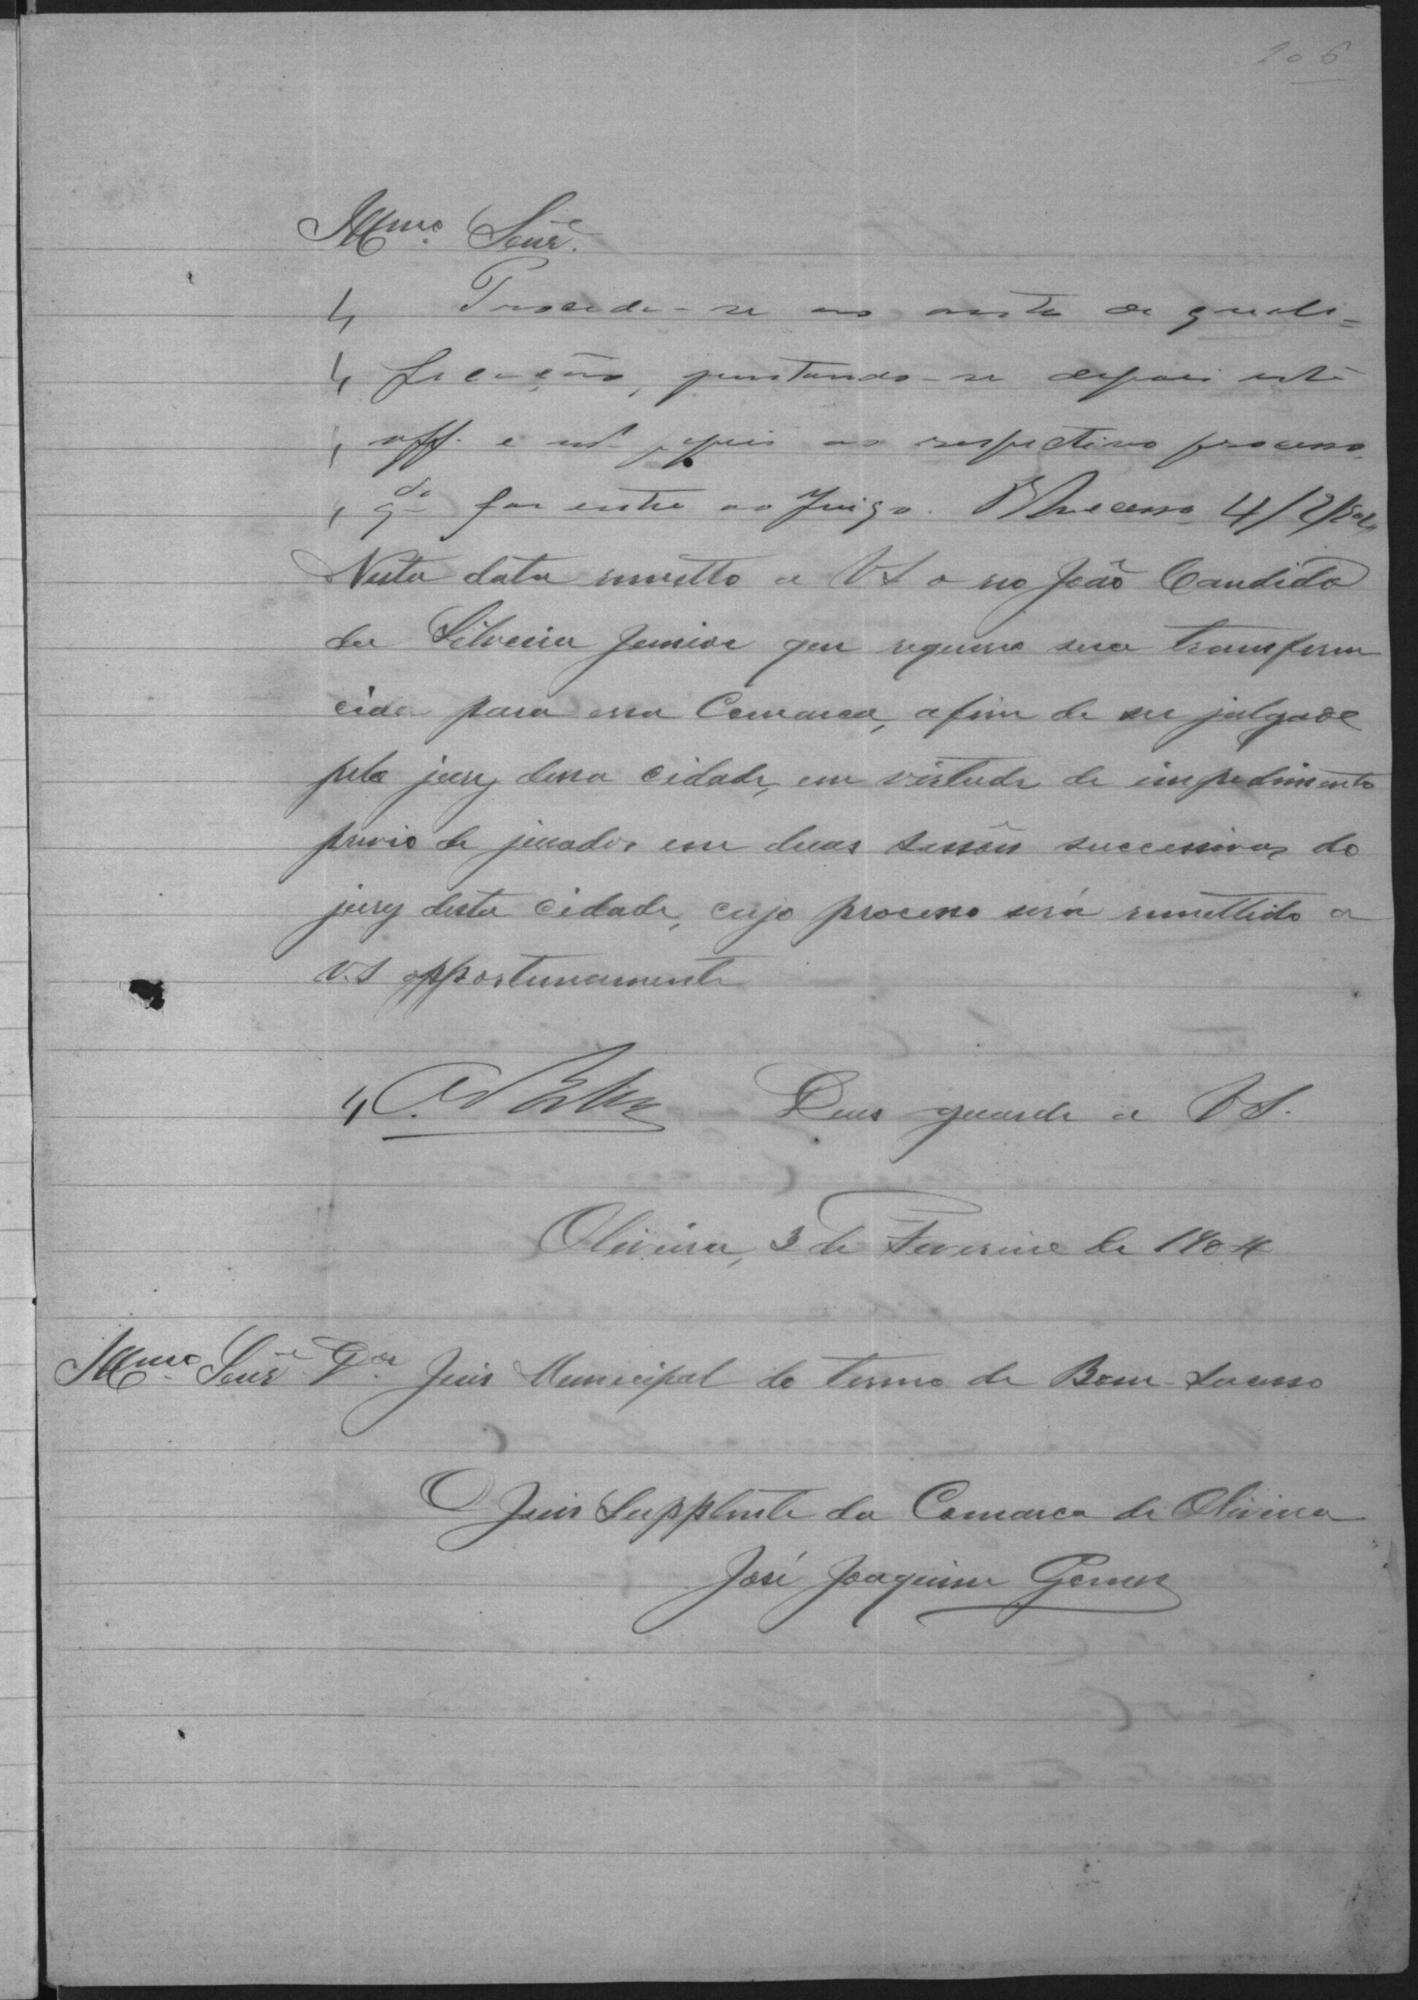 206
Illmo. Senr.
Proceda-se ao auto de quali=
ficação, juntando-se depois este
off. e papeis ao respectivo processo,
qdo for entre ao Juizo. B. Successo 4/2/904
Nesta data remetto a V S o reo João Candido
da Silveira Junior que requereu sua transferen
cia para essa Comarca, afim de ser julgado
pelo jury dessa cidade, em virtude de impedimento
previo de jurados em duas sessões successivas do
jury desta cidade, cujo processo será remettido a
V.S opportunamente
Deus guarde a V S.
Oliveira, 3 de Fevereiro de 1904
Illmo. Senr. Dor. Juis Municipal do termo de Bom-Sucesso
O Juis Supplente da Comarca de Oliveira
José Joaquim Gomes